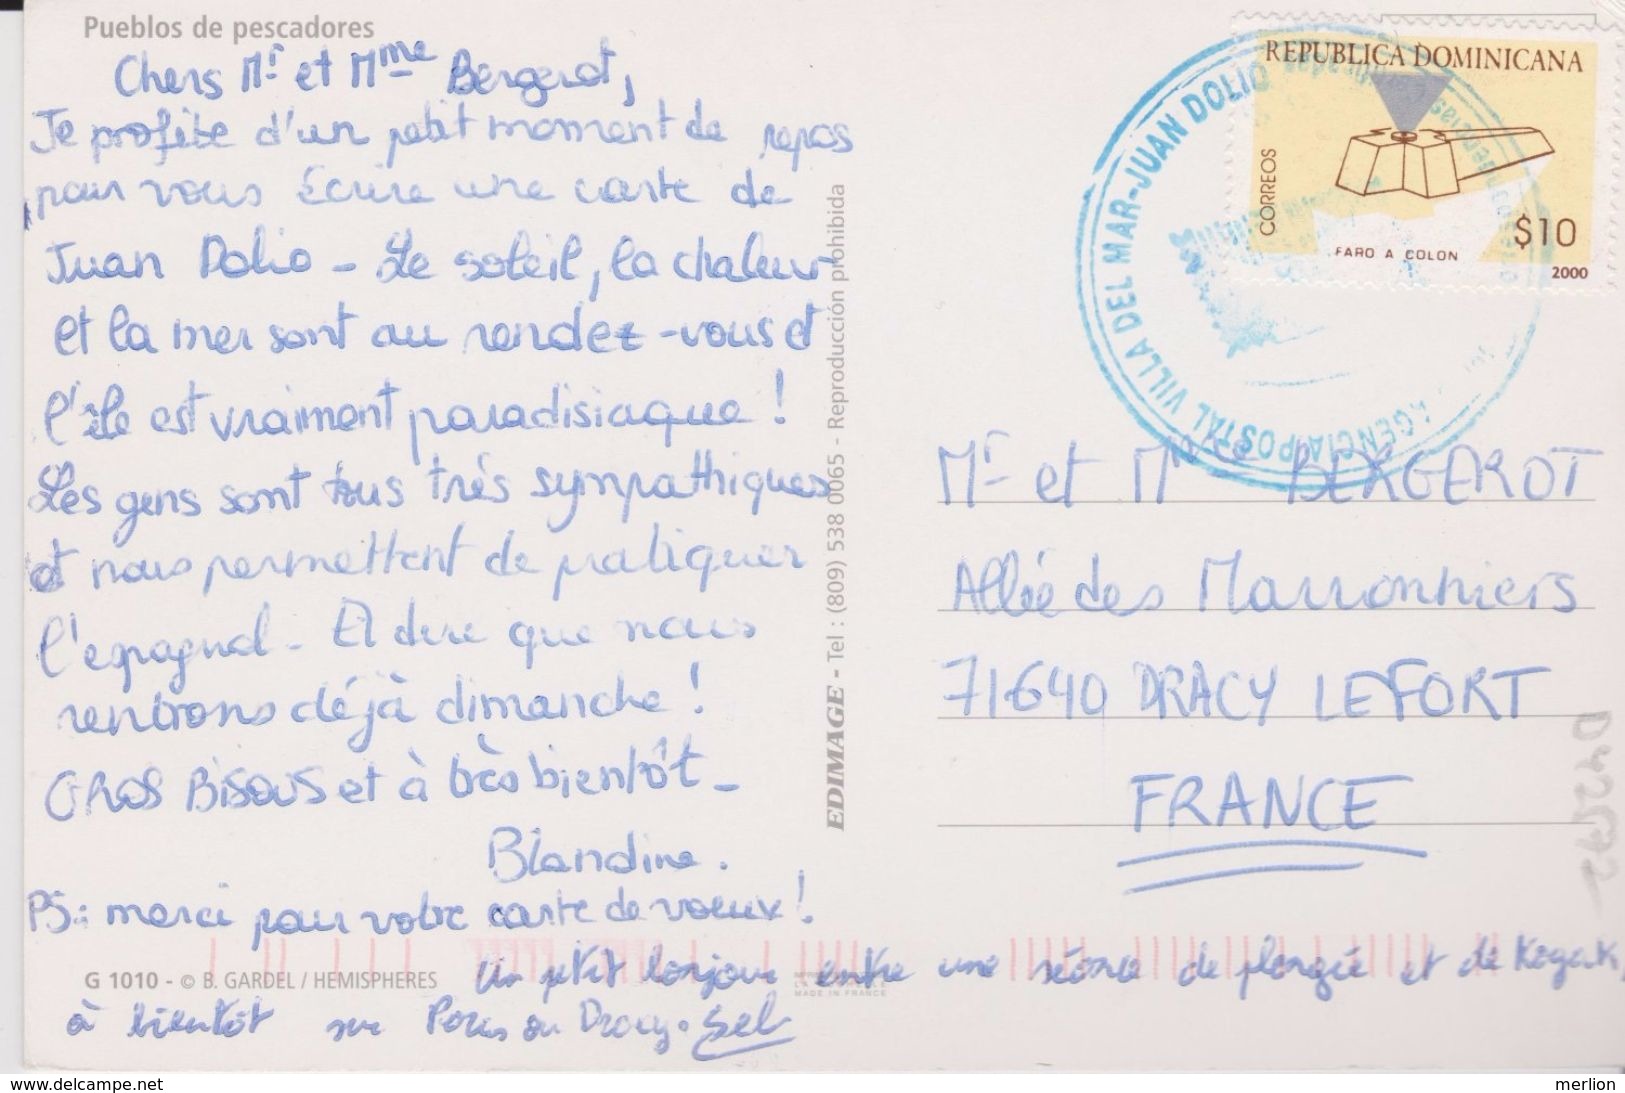 Pueblos de pescadores
Chers Mr et Mme Bergerot,
Je profite d'un petit moment de repos
pour vous écrire une carte de
Juan Dolio - Le soleil, la chaleur
et la mer sont au rendez-vous et
l'île est vraiment paradisiaque !
Les gens sont tous très sympathiques
et nous permettent de pratiquer
l'espagnol - Et dire que nous
rentrons déjà dimanche !
GROS BISOUS et à très bientôt -
Blandine.
PS : merci pour votre carte de voeux !
Un petit bonjour entre une séance de plongée et de Kayak,
à bientôt sur Paris ou Dracy. Seb
G 1010 - © B. GARDEL / HEMISPHERES
MADE IN FRANCE
EDIMAGE - Tel : (809) 538 0065 - Reproducción prohibida
REPUBLICA DOMINICANA
CORREOS
$10
FARO A COLON
2000
AGENCIA POSTAL VILLA DEL MAR-JUAN DOLIO
Mr et Mme BERGEROT
Allée des Marronniers
71640 DRACY LE FORT
FRANCE
www.delcampe.net
merlion